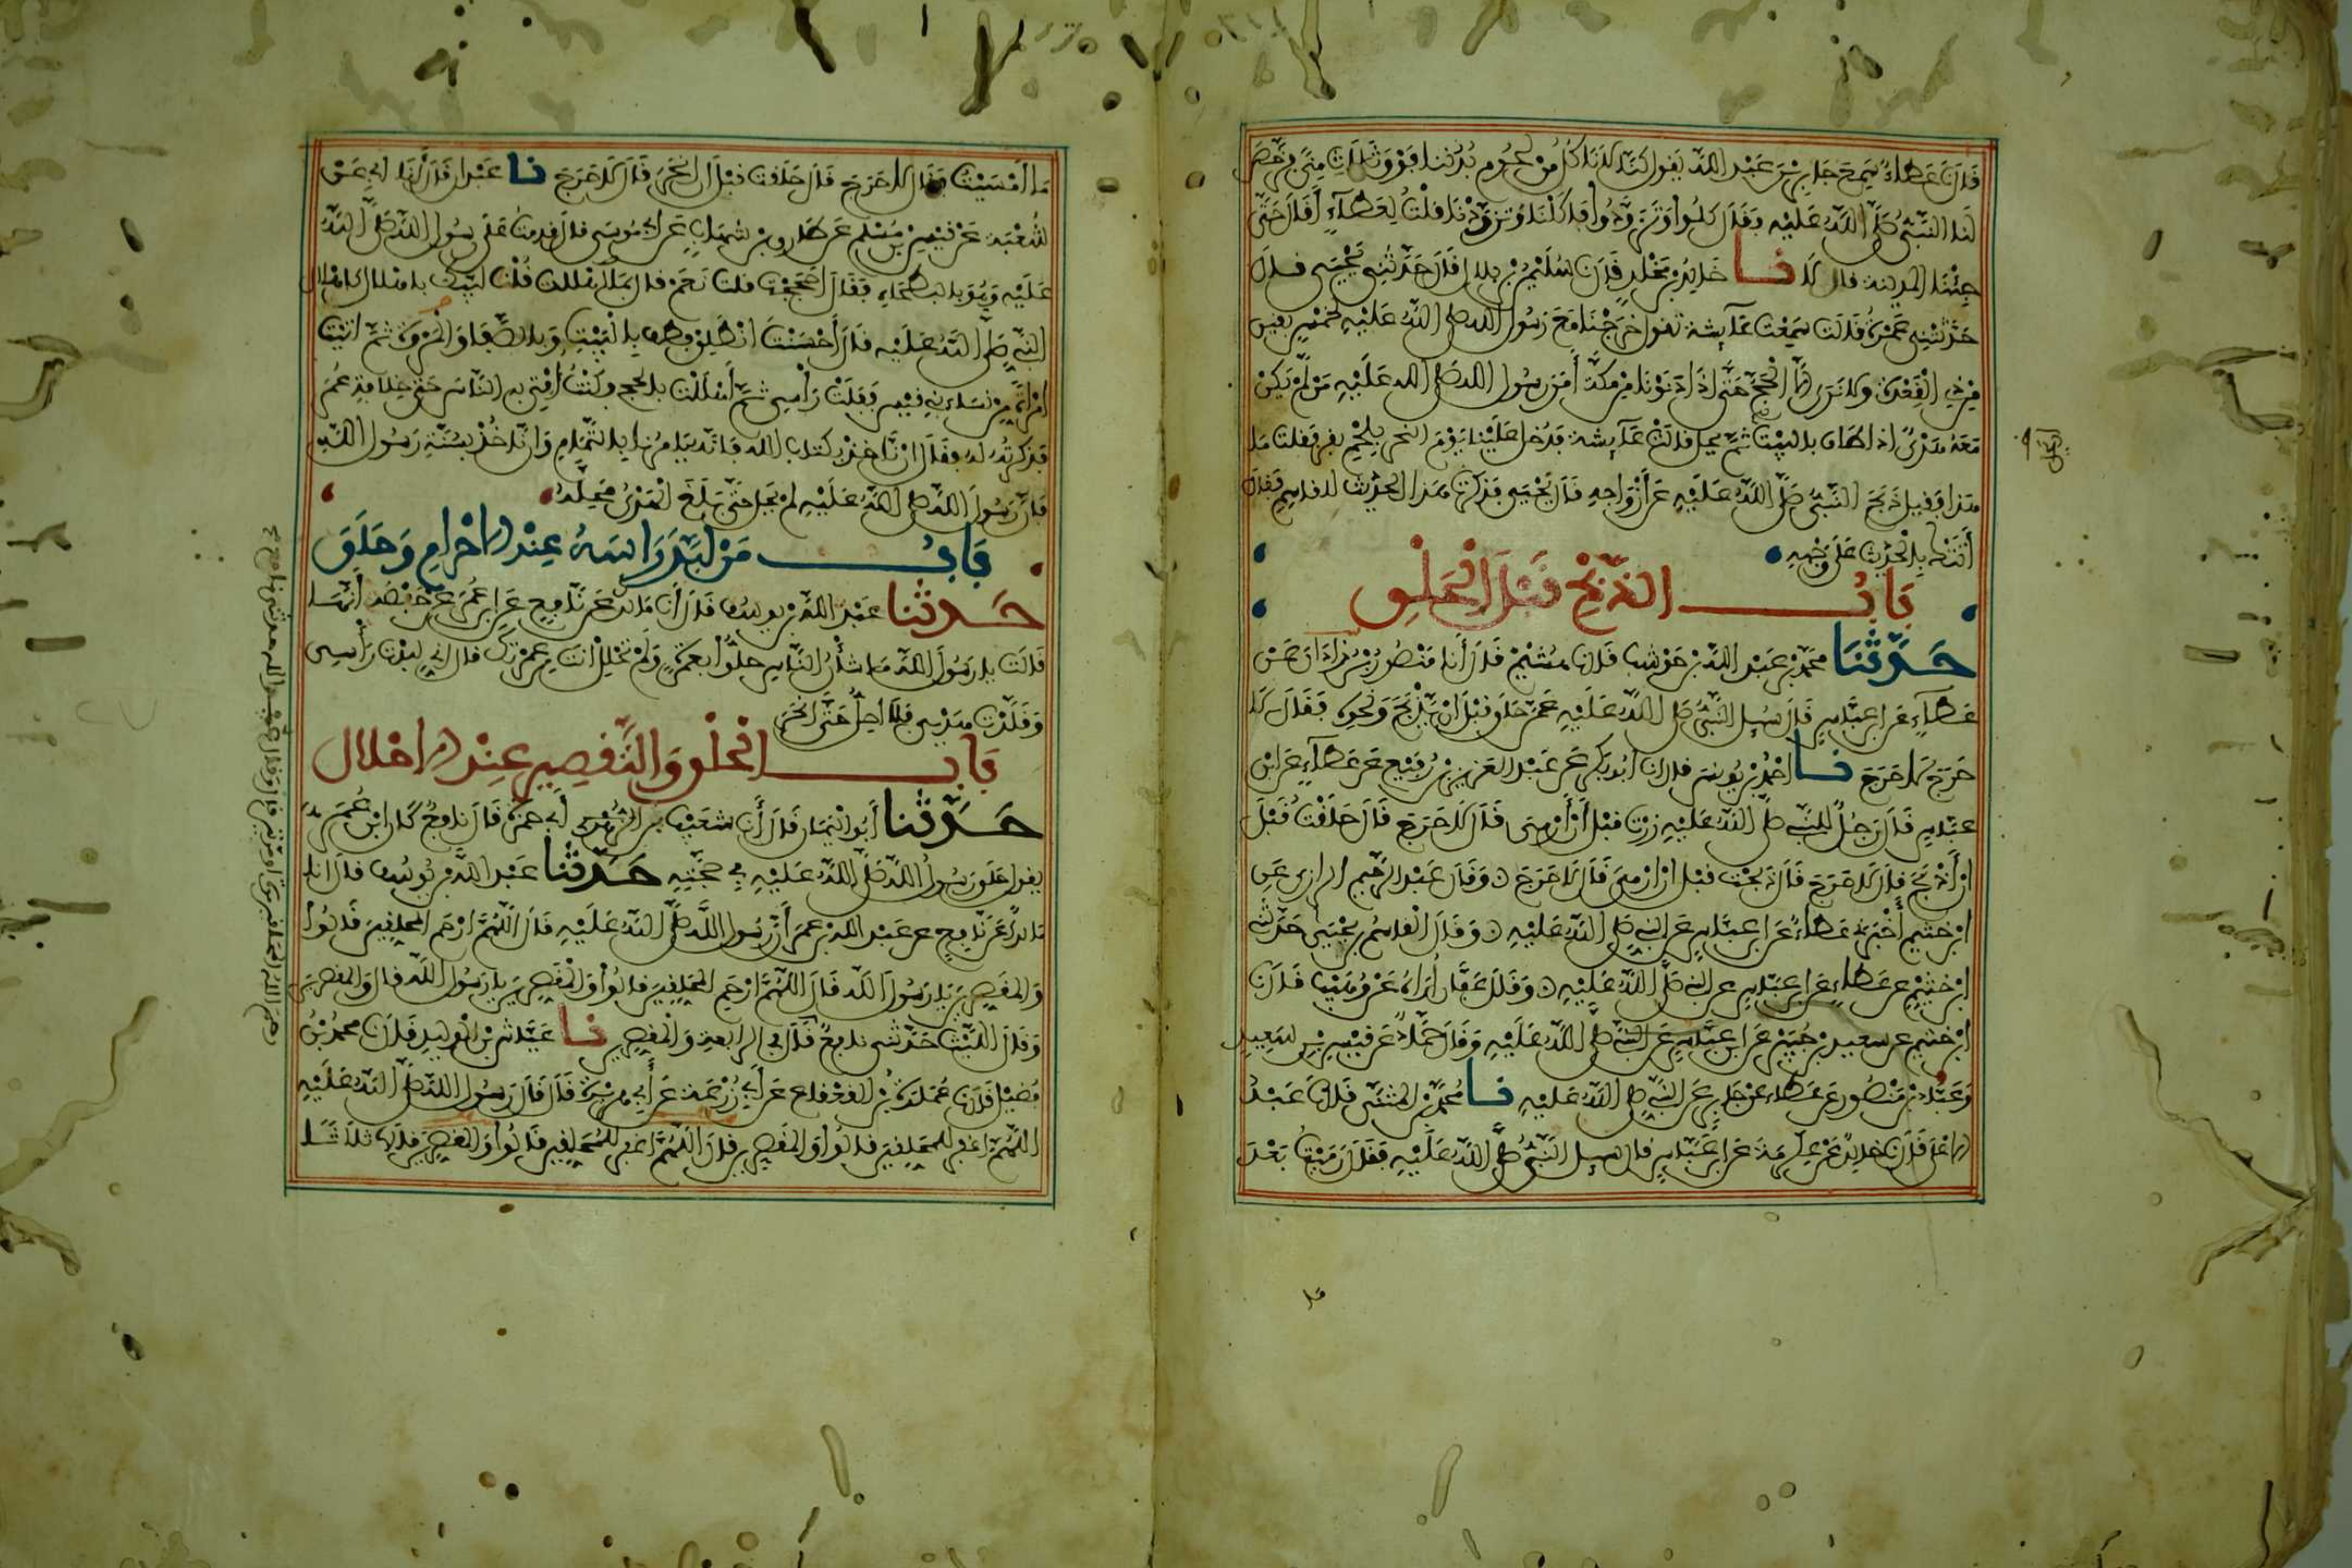 قال نا عطاء سمع جابر بن عبد الله يقول كنا لا ناكل من لحوم بدننا فوق ثلاث منى فرخص
لنا النبي صلى الله عليه فقال كلوا وتزودوا فاكلنا وتزودنا قلت لعطاء أقال حتى
جئنا المدينة قال لا نا خالد بن مخلد قال نا سليمن بن بلال قال حدثني يحيى قال
حدثتني عمرة قالت سمعت عائشة تقول خرجنا مع رسول الله صلى الله عليه لخمس بقين
من ذي القعدة ولا نرى إلا الحج حتى إذا دنونا من مكة أمر رسول الله صلى الله عليه من لم يكن
معه هدي اذا طاف بالبيت ثم يحل قالت عائشة فدخل علينا يوم النحر بلحم بقر فقلت ما
هذا فقيل ذبح النبي صلى الله عليه عن أزواجه قال يحيى فذكرت هذا الحديث للقاسم فقال
أتتك بالحديث على وجهه
باب الذبح قبل الحلق
حدثنا محمد بن عبد الله بن حوشب قال نا هشيم قال أنا منصور بن زاذان عن
عطاء عن ابن عباس قال سيل النبي صلى الله عليه عمن حلق قبل ان يذبح ونحوه فقال لا
حرج لا حرج نا احمد بن يونس قال انا أبو بكر عن عبد العزيز بن رفيع عن عطاء عن ابن
عباس قال رجل للنبي صلى الله عليه زرت قبل أن أرمي قال لا حرج قال حلقت قبل
أن أذبح قال لا حرج قال ذبحت قبل ان ارمي قال لا حرج وقال عبد الرحيم الرازي عن
ابن خثيم أخبرني عطاء عن ابن عباس عن النبي صلى الله عليه وقال القاسم بن يحيى حدثني
ابن خثيم عن عطاء عن ابن عباس عن النبي صلى الله عليه وقال عفان أراه عن وهيب قال نا
ابن خثيم عن سعيد بن جبير عن ابن عباس عن النبي صلى الله عليه وقال حماد عن قيس بن سعيد
وعباد بن منصور عن عطاء عن جابر عن النبي صلى الله عليه نا محمد بن المثنى قال نا عبد
الاعلى قال نا خالد عن عكرمة عن ابن عباس قال سيل النبي صلى الله عليه فقال رميت بعد
ما أمسيت فقال لا حرج قال حلقت قبل أن انحر قال لا حرج نا عبدان قال أنا ابي عن
شعبة عن قيس بن مسلم عن طارق بن شهاب عن ابي موسى قال قدمت على رسول الله صلى الله
عليه وهو بالبطحاء فقال أحججت قلت نعم قال بما أهللت قلت لبيك باهلال كاهلال
النبي صلى الله عليه قال أحسنت انطلق فطف بالبيت وبالصفا والمروة ثم أتيت
امرأة من نساء بني قيس ففلت رأسي ثم أهللت بالحج وكنت أفتي به الناس حتى خلافة عمر
فذكرته له فقال ان ناخذ بكتاب الله فانه يامرنا بالتمام وان ناخذ بسنة رسول الله
فان رسول الله صلى الله عليه لم يحل حتى بلغ الهدي محله
باب من لبد راسه عند الاحرام وحلق
حدثنا عبد الله بن يوسف قال أنا مالك عن نافع عن ابن عمر عن حفصة أنها
قالت يا رسول الله ما شأن الناس حلوا بعمرة ولم تحلل أنت من عمرتك قال إني لبدت رأسي
وقلدت هديي فلا احل حتى انحر
باب الحلق والتقصير عند الاحلال
حدثنا أبو اليمان قال أنا شعيب بن أبي حمزة قال نافع كان ابن عمر
يقول حلق رسول الله صلى الله عليه في حجته حدثنا عبد الله بن يوسف قال انا
مالك عن نافع عن عبد الله بن عمر أن رسول الله صلى الله عليه قال اللهم ارحم المحلقين قالوا
والمقصرين يا رسول الله قال اللهم ارحم المحلقين قالوا والمقصرين يا رسول الله قال والمقصرين
وقال الليث حدثني نافع قال في الرابعة والمقصرين نا عياش بن الوليد قال نا محمد بن
فضيل قال نا عمارة بن القعقاع عن أبي زرعة عن أبي هريرة قال قال رسول الله صلى الله عليه
اللهم اغفر للمحلقين قالوا والمقصرين قال اللهم اغفر للمحلقين قالوا والمقصرين قالها ثلاثا